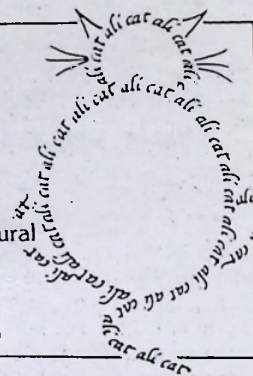 ali cat ali cat ali cat ali
ali cat ali cat ali cat ali cat ali ali cat ali cat ali cat ali cat ali cat ali cat ali cat ali cat
ural
cat
ali cat
ali cat ali cat